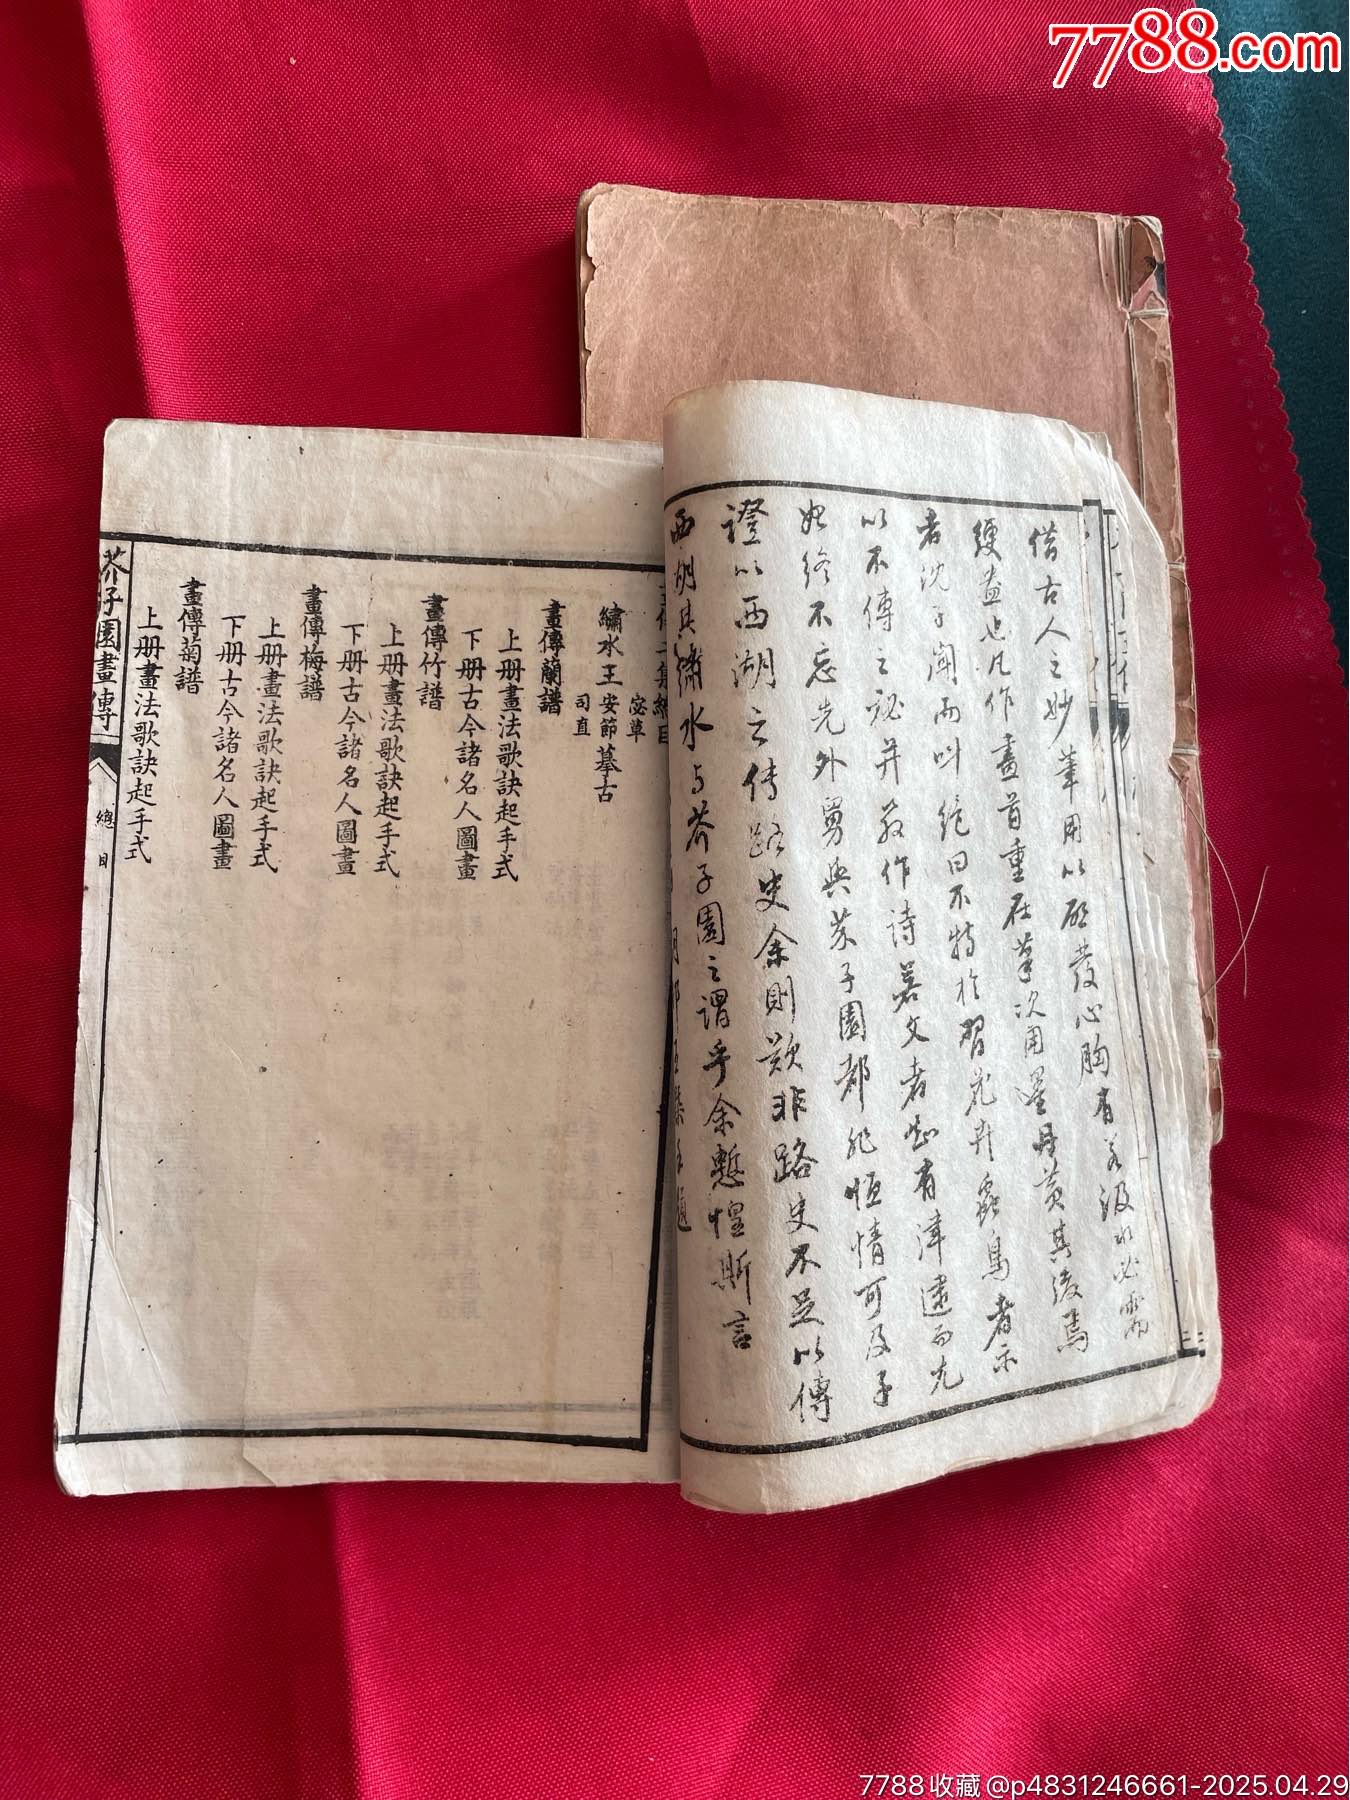 7788.com
借古人之妙筆用以啟發心胸有若汲水必需
綆盎也凡作畫首重在筆次用墨丹黃其後焉
者沈子聞而叫絕曰不特於習花卉蟲鳥者示
以不傳之祕并教作詩若文者知有津逮而尤
始終不忘先外舅與芥子園都非恒情可及予
證以西湖之传路史余則歎非路史不足以傳
西湖其繡水与芥子園之謂乎余慙惶斯言
繡水王
宓草
安節
司直
摹古
畫傳蘭譜
上册畫法歌訣起手式
下册古今諸名人圖畫
畫傳竹譜
上册畫法歌訣起手式
下册古今諸名人圖畫
畫傳梅譜
上册畫法歌訣起手式
下册古今諸名人圖畫
畫傳菊譜
上册畫法歌訣起手式
芥子園畫傳
總目
7788收藏@p4831246661-2025.04.29